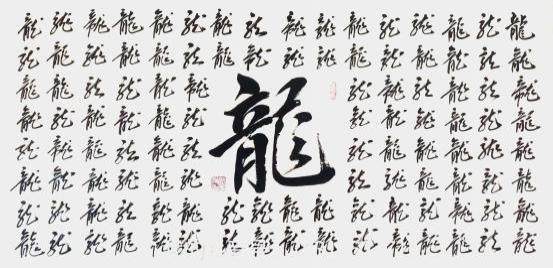 龍龍龍龍龍龍龍龍龍龍龍龍龍龍龍龍
龍龍龍龍龍龍龍龍龍龍龍龍龍龍龍龍
龍龍龍龍龍龍龍龍龍龍龍龍
龍龍龍龍龍龍龍龍龍龍龍龍
龍
龍龍龍龍龍龍龍龍龍龍龍龍
龍龍龍龍龍龍龍龍龍龍龍龍
龍龍龍龍龍龍龍龍龍龍龍龍龍龍龍龍
龍龍龍龍龍龍龍龍龍龍龍龍龍龍龍龍